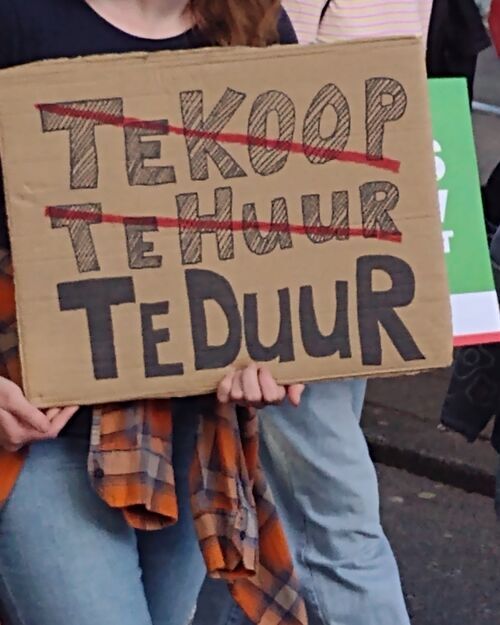 TE KOOP
TE HUUR
TE DUUR